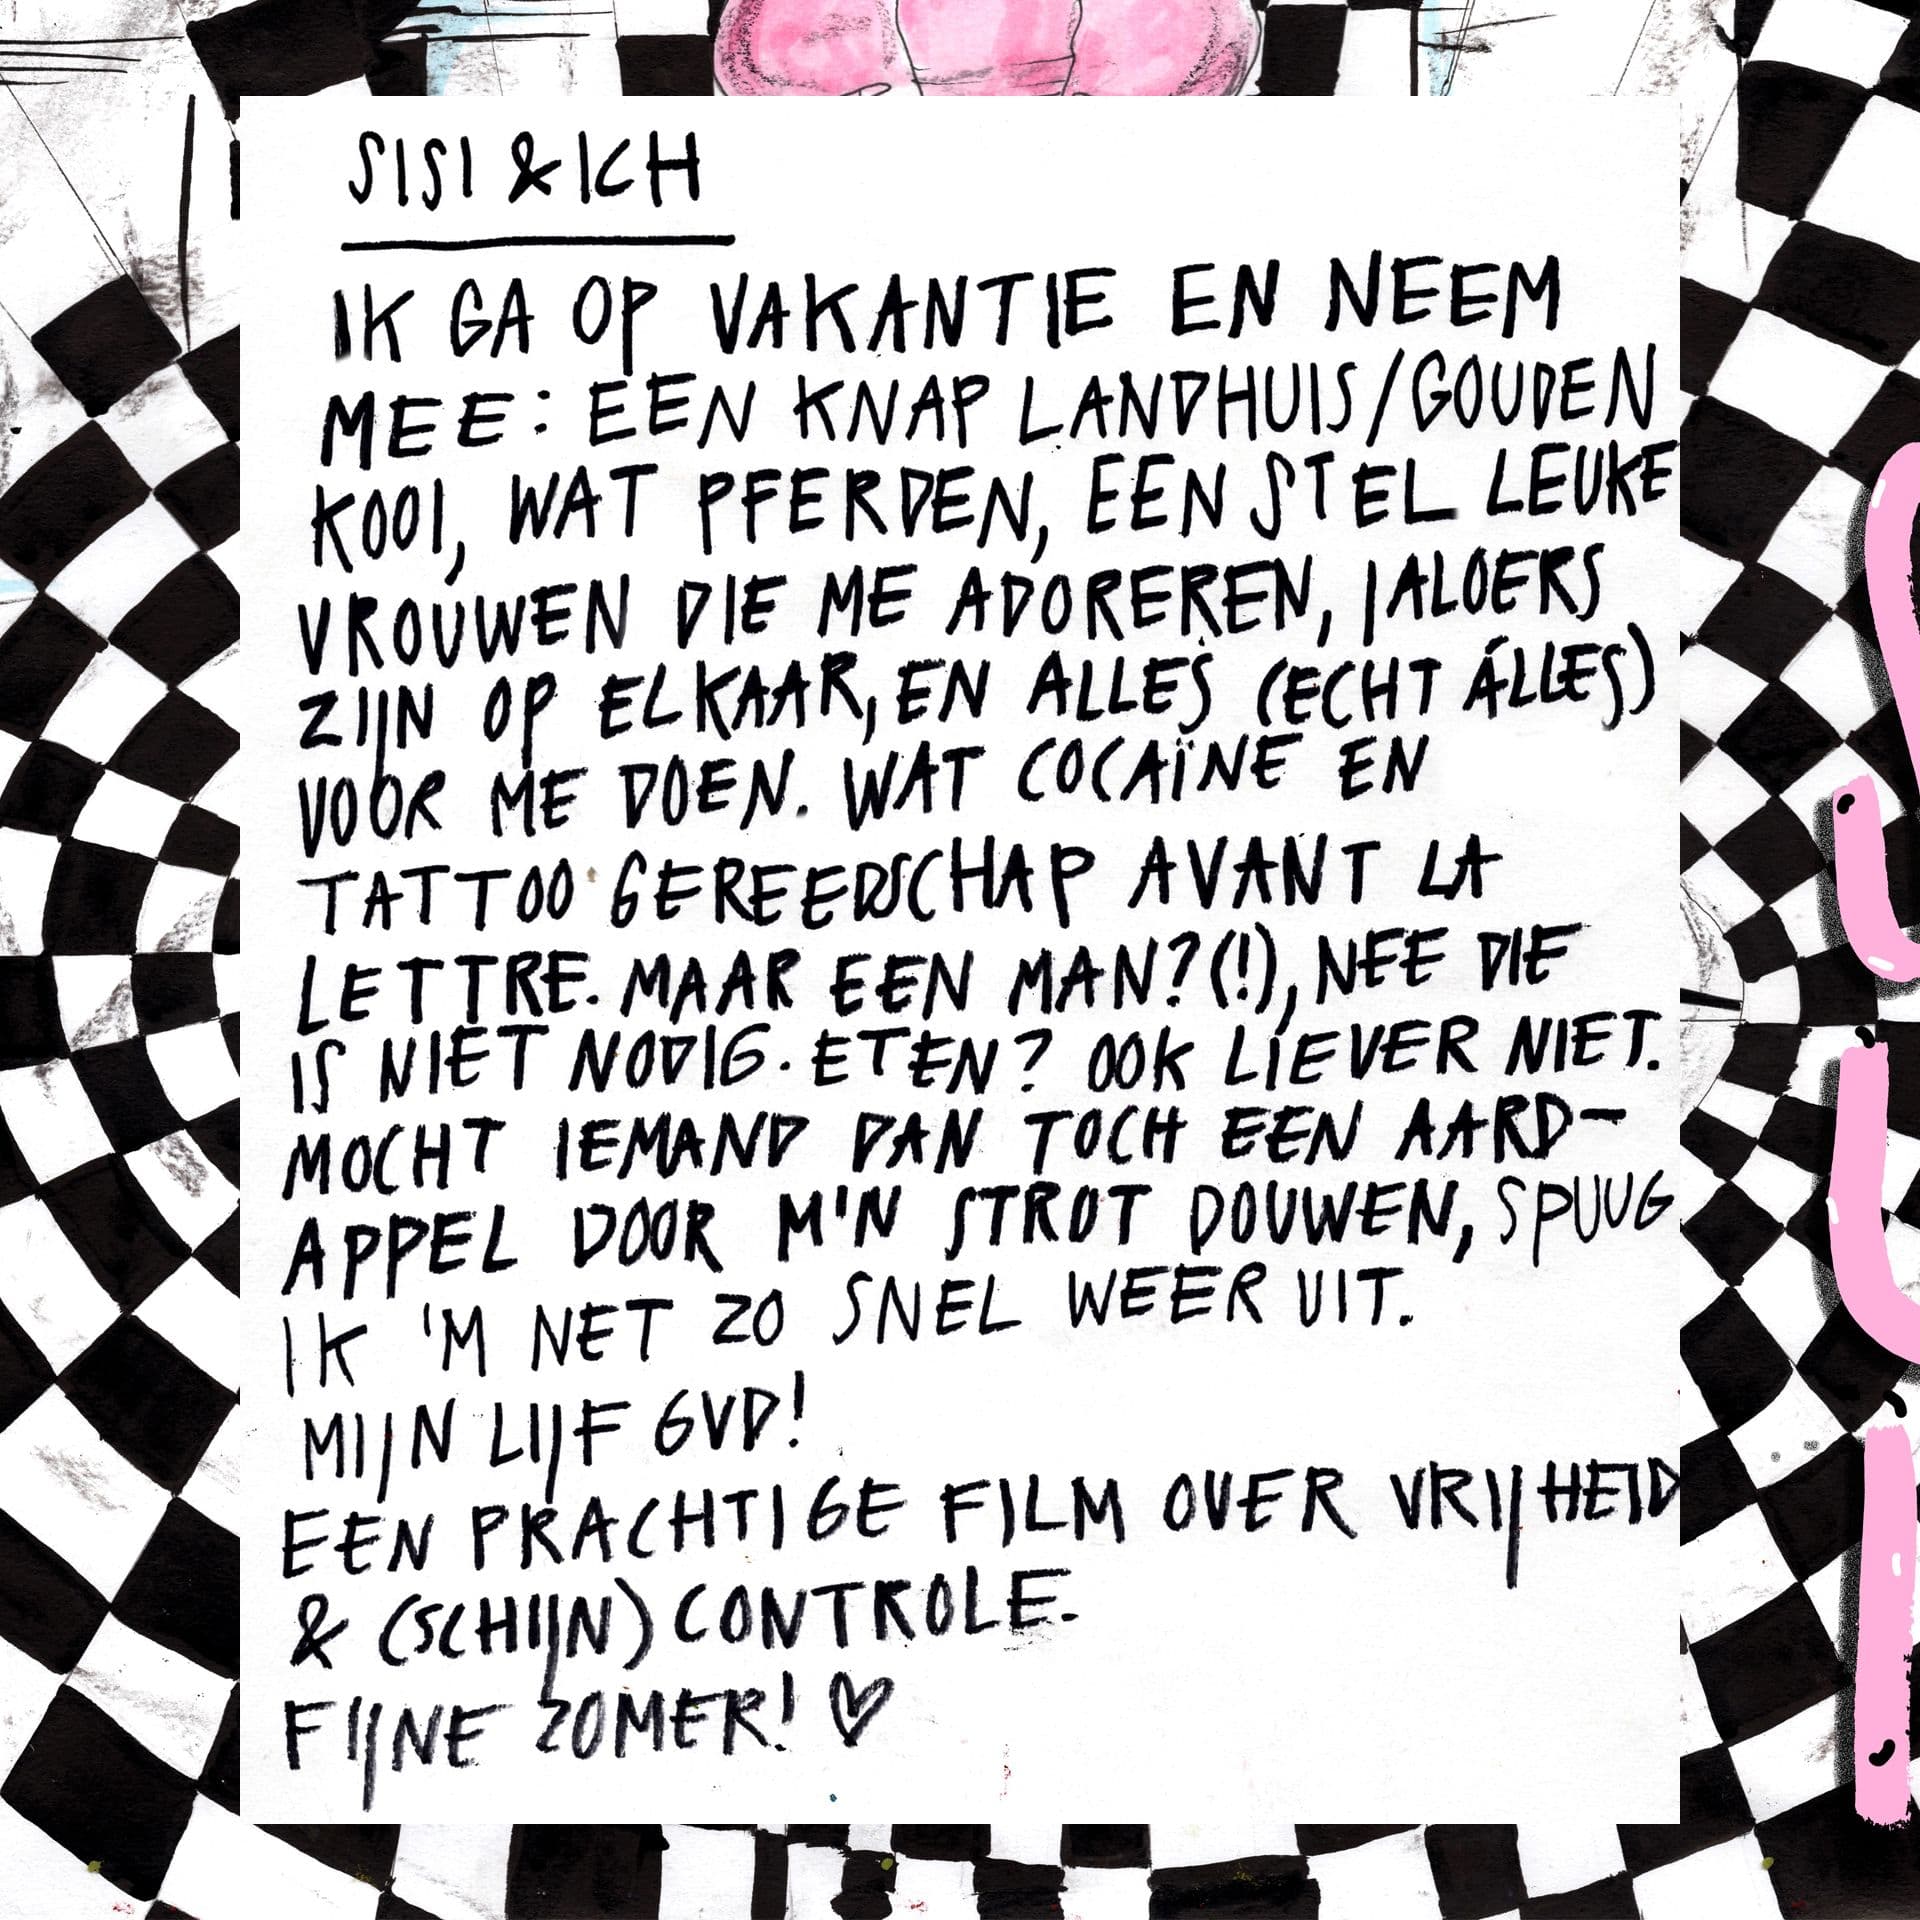 SISI & ICH
IK GA OP VAKANTIE EN NEEM
MEE: EEN KNAP LANDHUIS/GOUDEN
KOOI, WAT PFERDEN, EEN STEL LEUKE
VROUWEN DIE ME ADOREREN, JALOERS
ZIJN OP ELKAAR, EN ALLES (ECHT ÁLLES)
VOOR ME DOEN. WAT COCAÏNE EN
TATTOO GEREEDSCHAP AVANT LA
LETTRE. MAAR EEN MAN?(!), NEE DIE
IS NIET NODIG. ETEN? OOK LIEVER NIET.
MOCHT IEMAND DAN TOCH EEN AARD-
APPEL DOOR M'N STROT DOUWEN, SPUUG
IK 'M NET ZO SNEL WEER UIT.
MIJN LIJF GVD!
EEN PRACHTIGE FILM OVER VRIJHEID
& (SCHIJN) CONTROLE.
FIJNE ZOMER! ♡